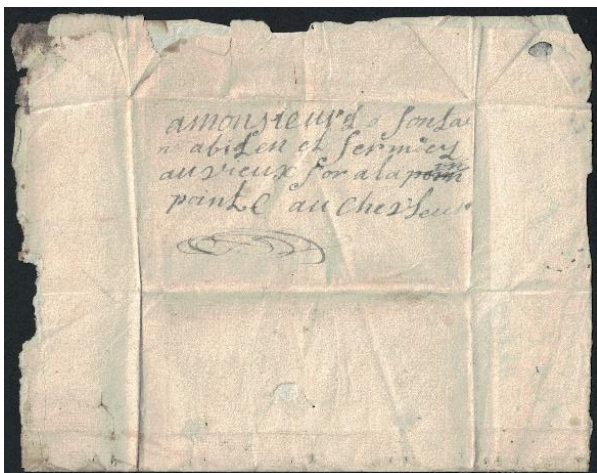 amonsieur de fontai
n abiten et fermiey
au vieux for a la poin
pointe au chevleur